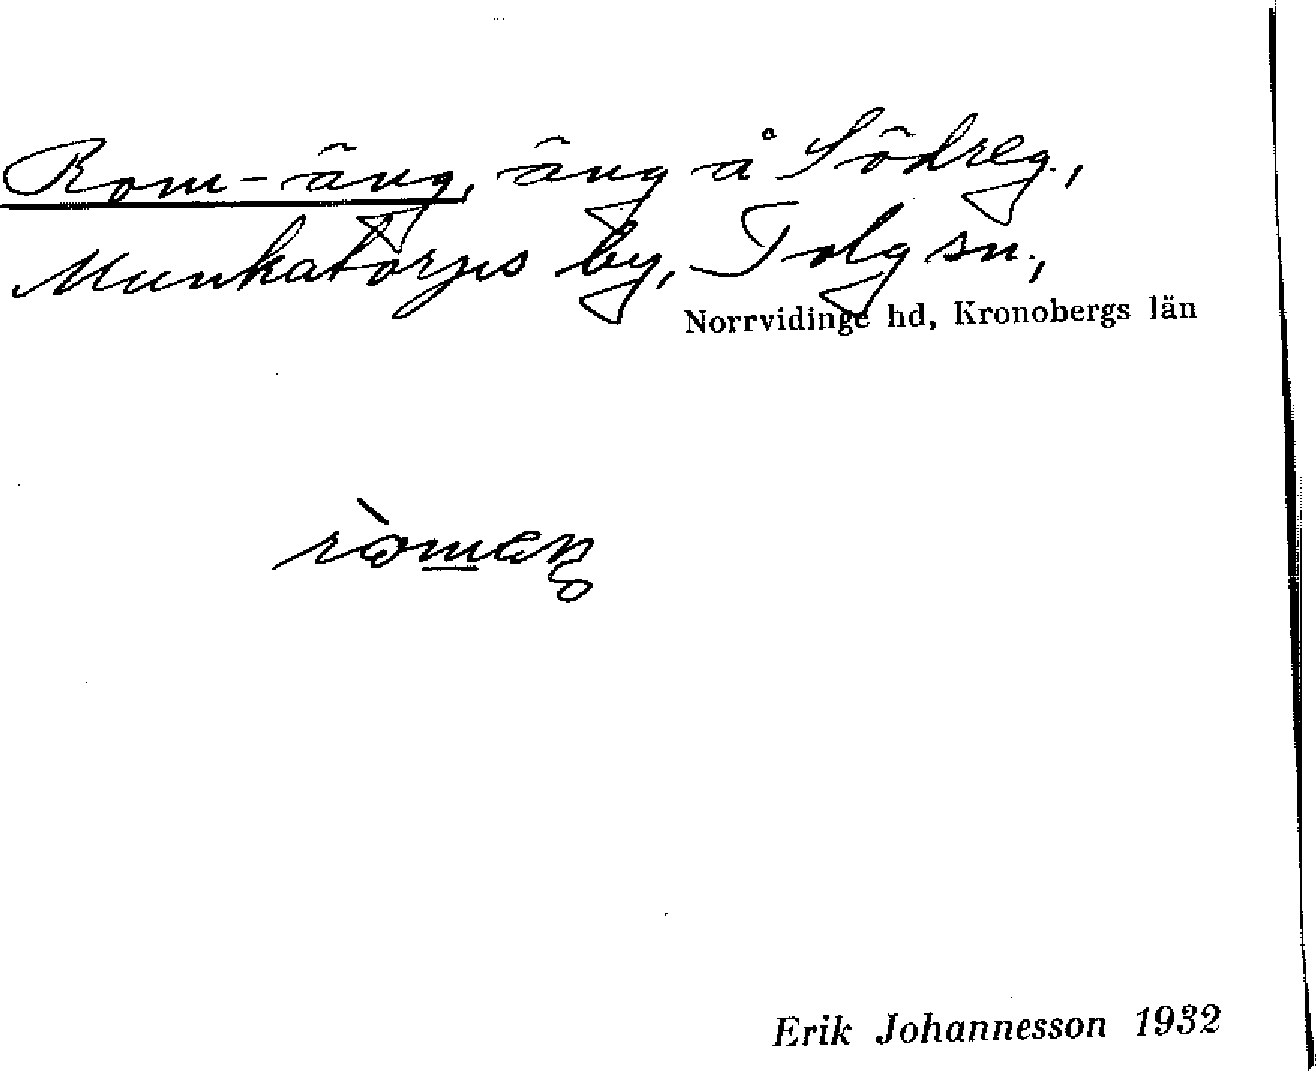 Rom-äng, äng å Södreg.,
Munkatorps by, Tolg sn.,
Norrvidinge hd, Kronobergs län
Erik Johannesson 1932